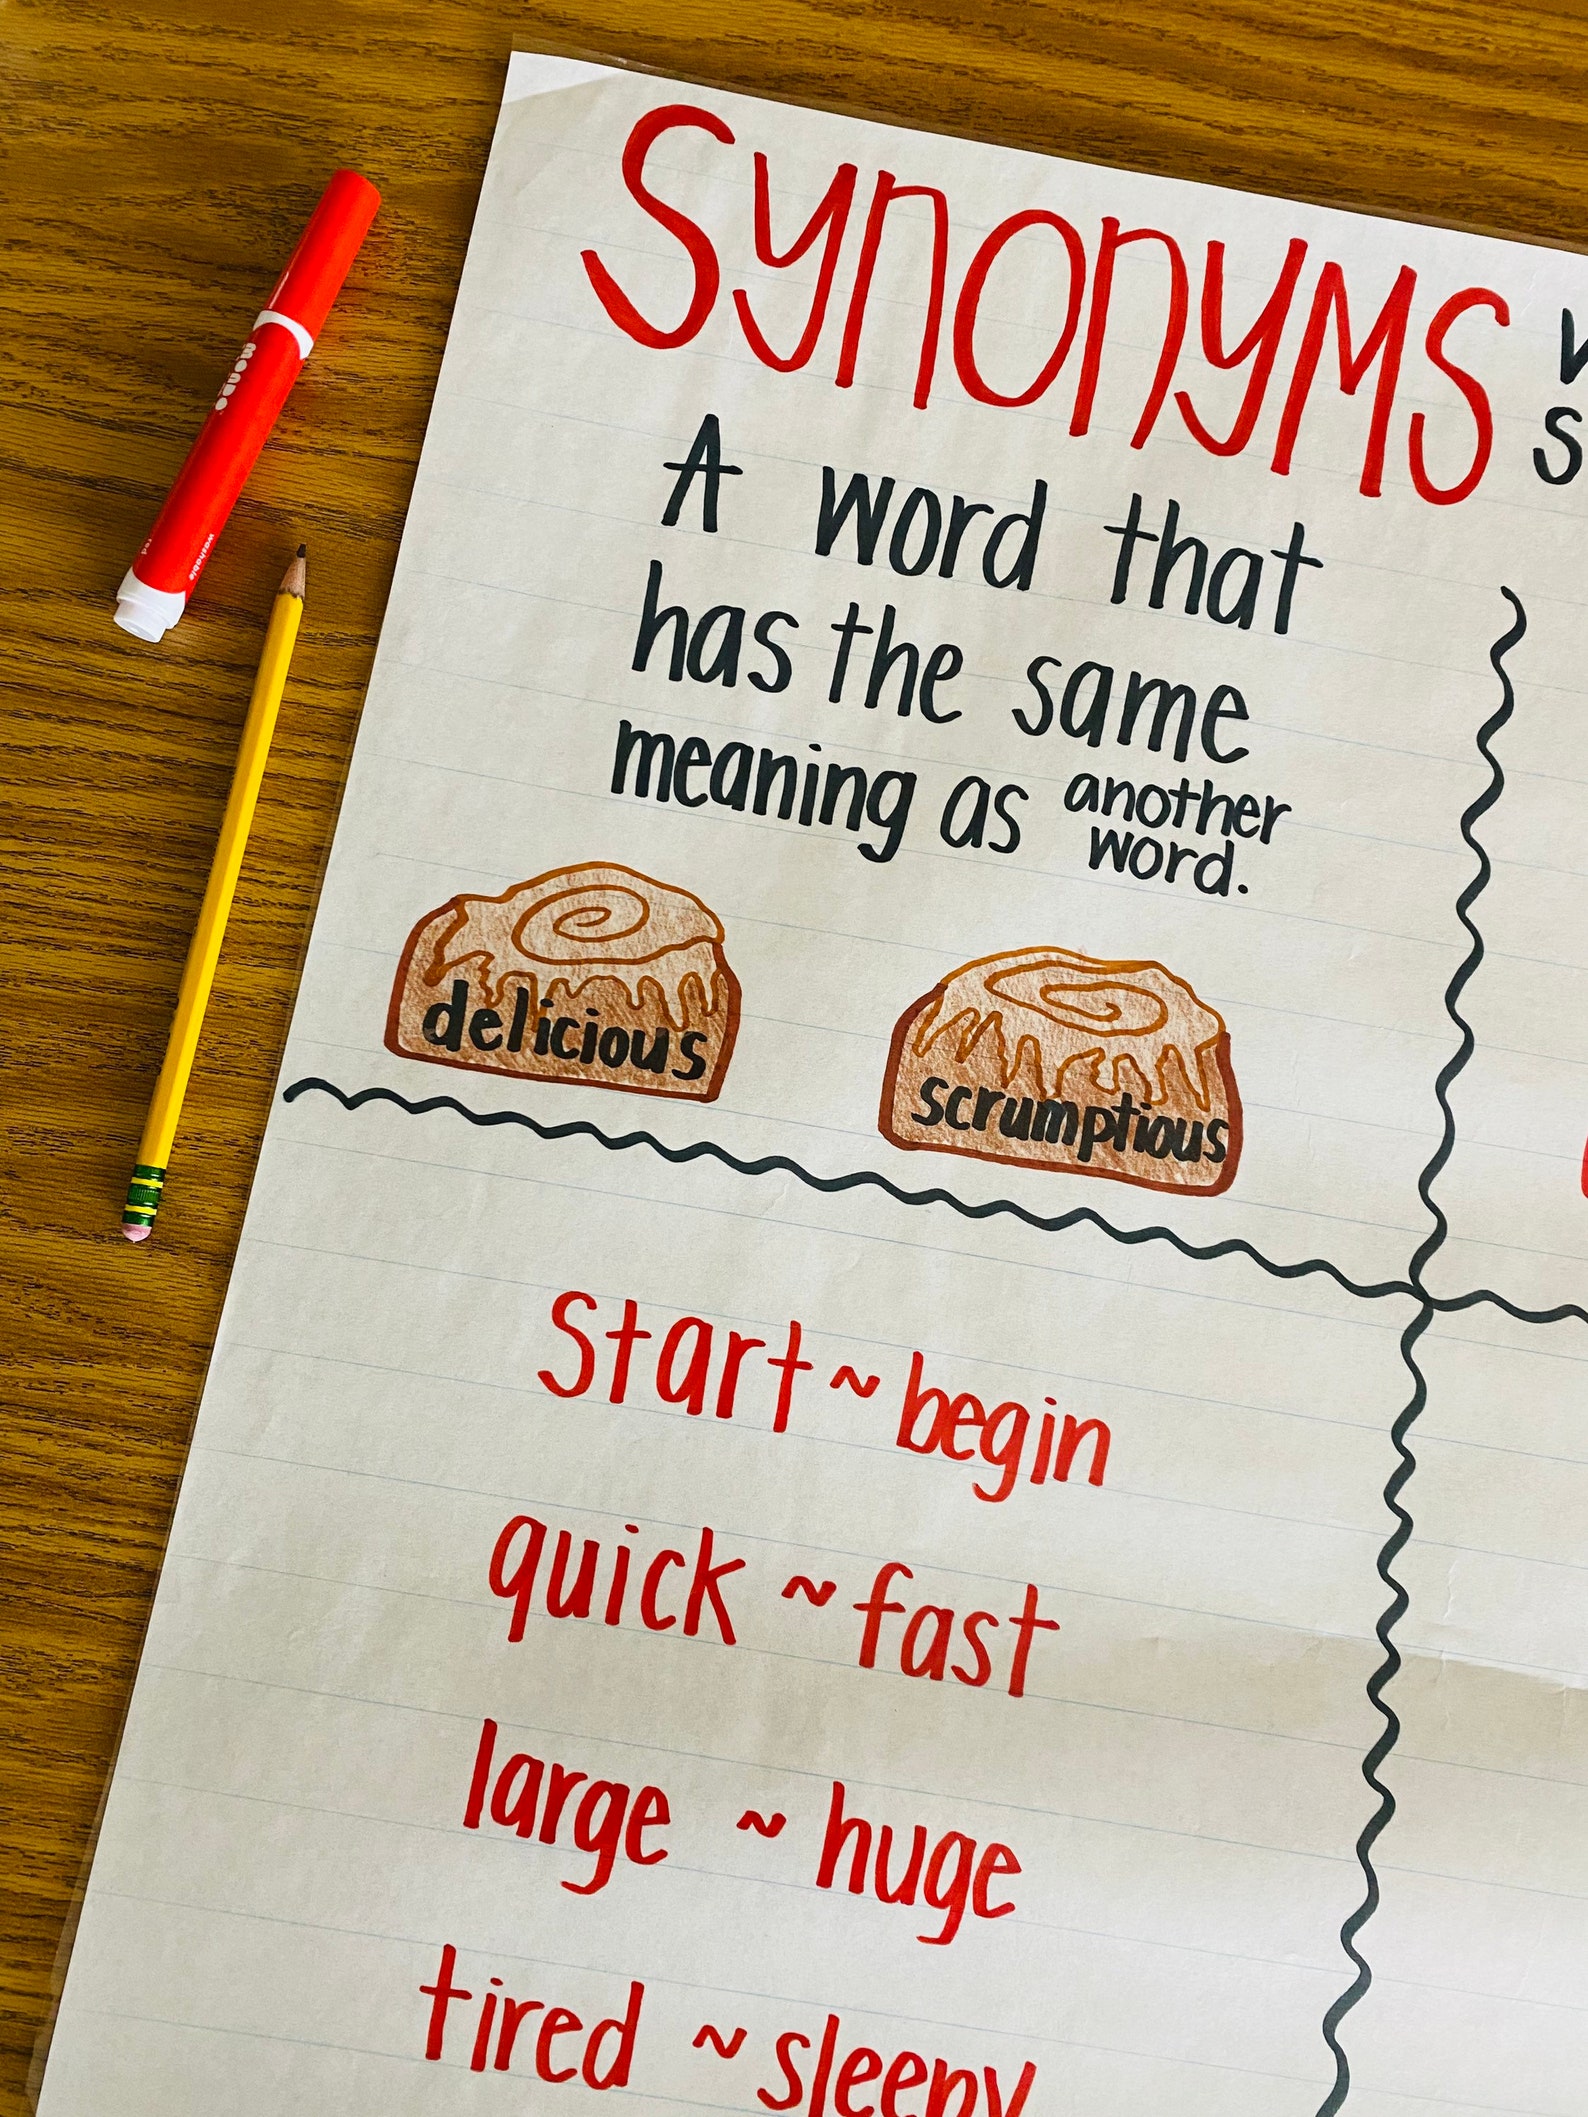 Synonyms
A word that
has the same
meaning as another
word.
delicious
scrumptious
Start~begin
quick ~ fast
large ~ huge
tired ~ sleepy
washable
red